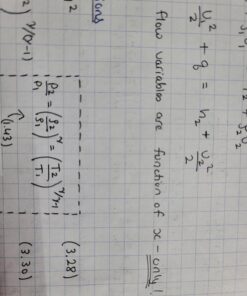 U₁²/2 + q = h₂ + U₂²/2
flow variables are function of x - only!
P₂/P₁ = (ρ₂/ρ₁)^γ = (T₂/T₁)^γ/γ-1
(3.28)
(1.43)
(3.30)